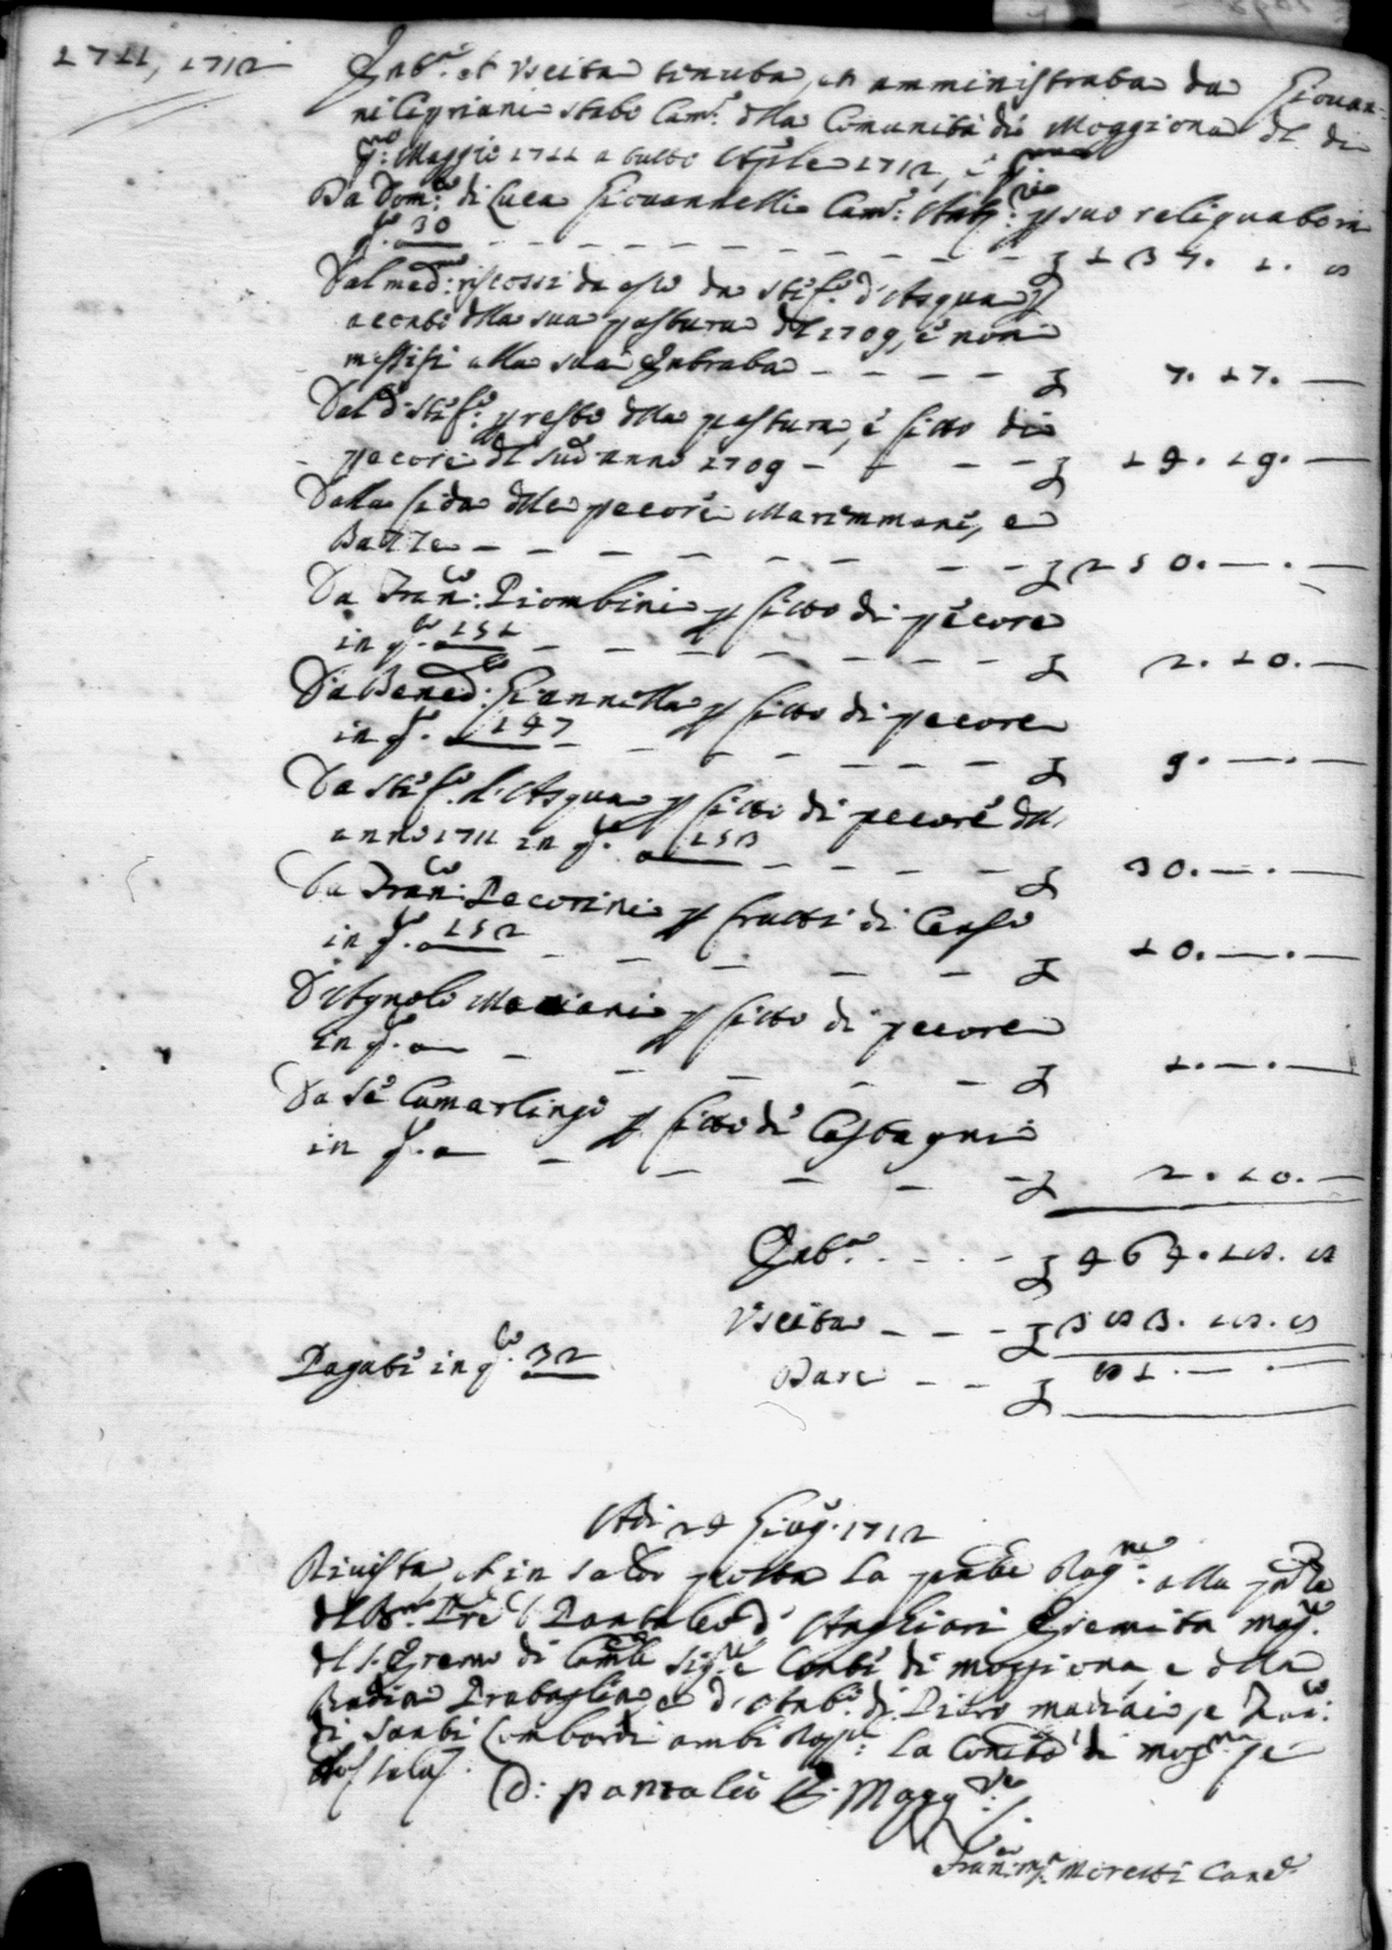 1711, 1712
Entr.ta et Uscita tenuta, et amministrata da Giovan-
ni Cipriani stato Cam.o della Comunità di Moggiona dal dì
p.mo Maggio 1711 a tutto Aprile 1712, è
Da Dom.co di Luca Giovannelli Cam.o Ant.re p suo reliquato in
f.o a 30 - - - £ 137. 1. 8
Dal med.mo riscossi da esso da Stef.o d'Asqua p
aconto della sua pastura del 1709, è non
messisi alla sua Entrata - - - £ 7. 17. —
Dal d.o Stef.o p resto della pastura, è fitto di
pecore del sud.o anno 1709 - - - £ 14. 19. —
Dalla fida delle pecore Maremmane, e
Bazze - - - £ 250. — . —
Da Fran.co Piombini p fitto di pecore
in f.o a 151 - - - £ 2. 10. —
Da Bened.o Giannella p fitto di pecore
in f.o a 147 - - - £ 9. — . —
Da Stef.o d'Asqua p fitto di pecore del
anno 1711 in f.o a 153 - - - £ 30. — . —
Da Fran.co Pecorini p frutti di Censo
in f.o a 152 - - - £ 10. — . —
D'Agnolo Mariani p fitto di pecore
in f.o a — - - - £ 1. — . —
Da Sè Camarlingo p fitto di Castagni
in f.o a — - - - £ 2. 10. —
Entr.ta - - - £ 464. 18. 8
Uscita - - - £ 383. 18. 8
Pagati in f.o a 32 Dare - - £ 81. — . —
Adì 24 Giug.o 1712
Rivista, et in saldo posta la pnte Rag.ne alla pñza
del M.to Pre D. Pantaleo d'Anghiari Eremita Mag.re
del S. Eremo di Camli Sig.re Conte di Moggiona, e della
Badia Prataglia, e d'Ant.o di Piero Madiai, e Fran.co
di Santi Lombardi ambi Rapp.ti la Comtà di Mog.na
D: Pantaleo E. Magg.re
Fran.co M.a Moretti Canc.e